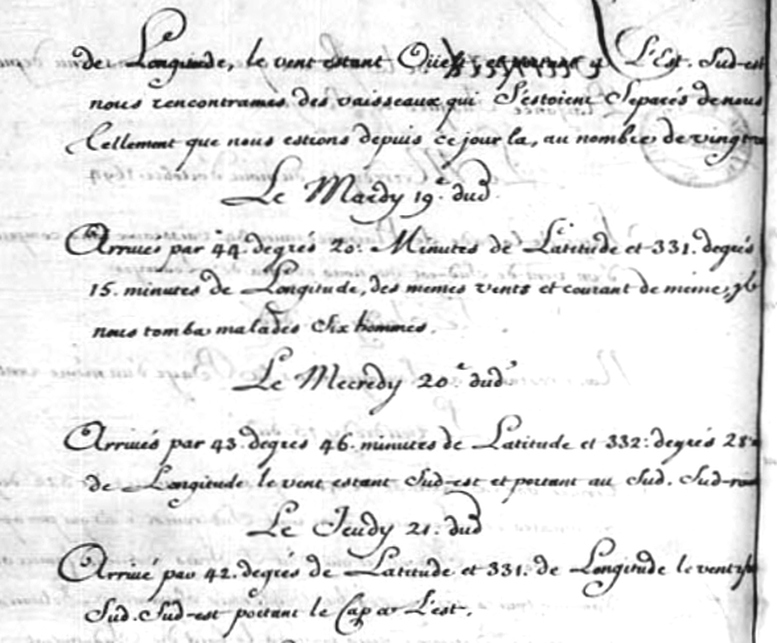 de Longitude, le vent estant Oüest, et portant a L'Est. Sud-est
nous rencontrames des vaisseaux qui s'estoient separés de nous
tellement que nous estions depuis ce jour la, au nombre de vingt
Le Mardy 19.e dud.
Arrivés par 44. degrés 20. Minutes de Latitude et 331. degrés
15. minutes de Longitude, des memes vents et courant de meme, il
nous tomba malades six hommes.
Le Mecredy 20.e dud.
Arrivés par 43. degrés 46. minutes de Latitude et 332. degrés 28
de Longitude le vent estant Sud-est et portant au Sud. Sud-
Le Jeudy 21. dud
Arrivé par 42. degrés de Latitude et 331. de Longitude le vent
Sud. Sud-est portant le Cap a L'est.